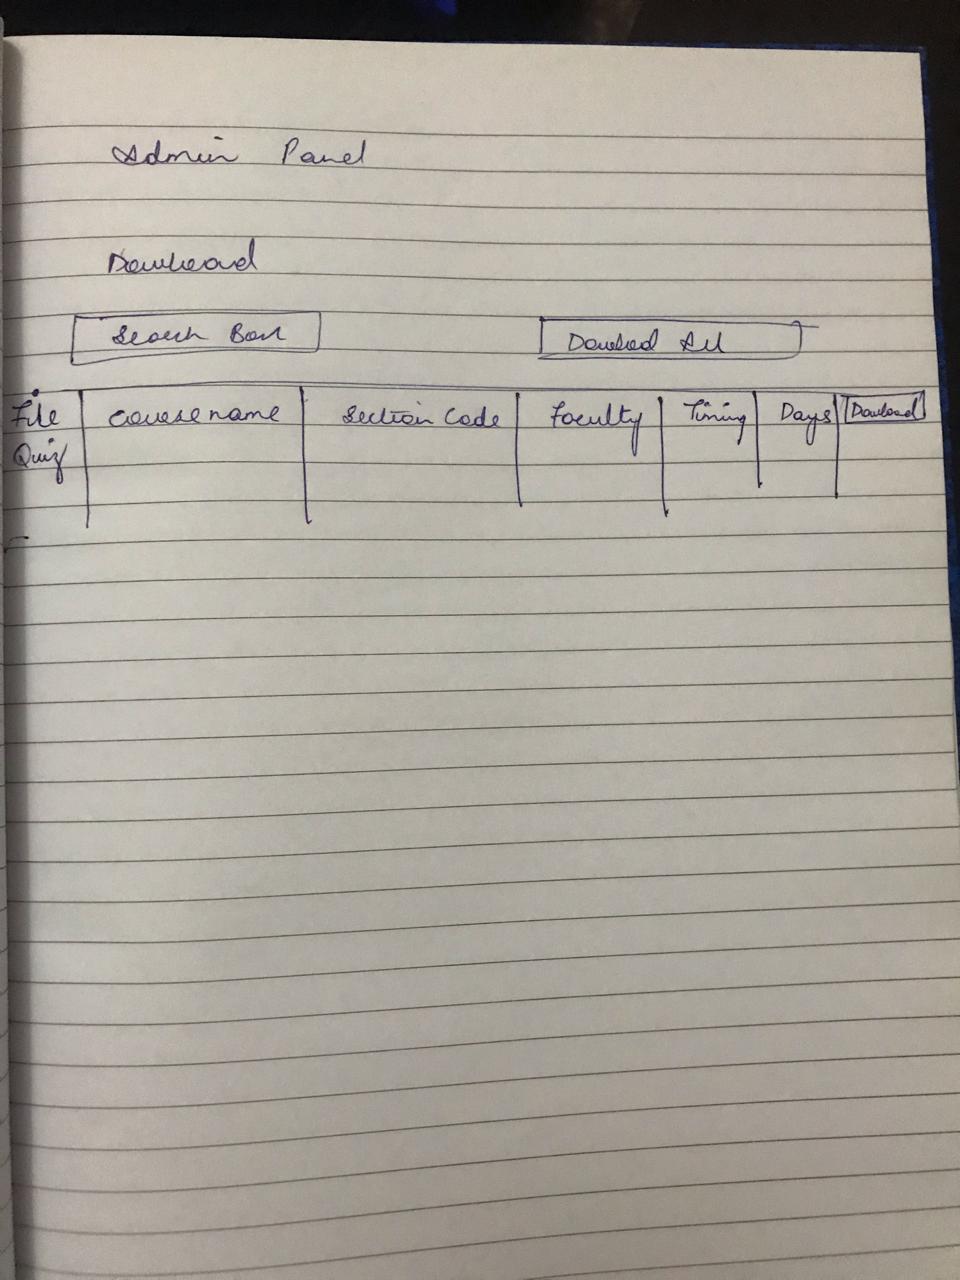 Admin Panel
Download
Search Bar
Download All
File Course name Section Code Faculty Timing Days Download
Quiz